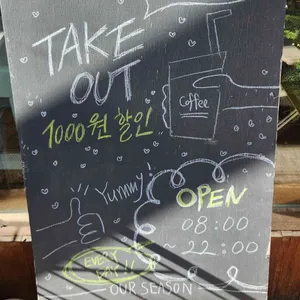 TAKE
OUT
Coffee
1000원 할인
Yummy!
OPEN
08:00
~ 22:00
EVERY
DAY!!
OUR SEASON